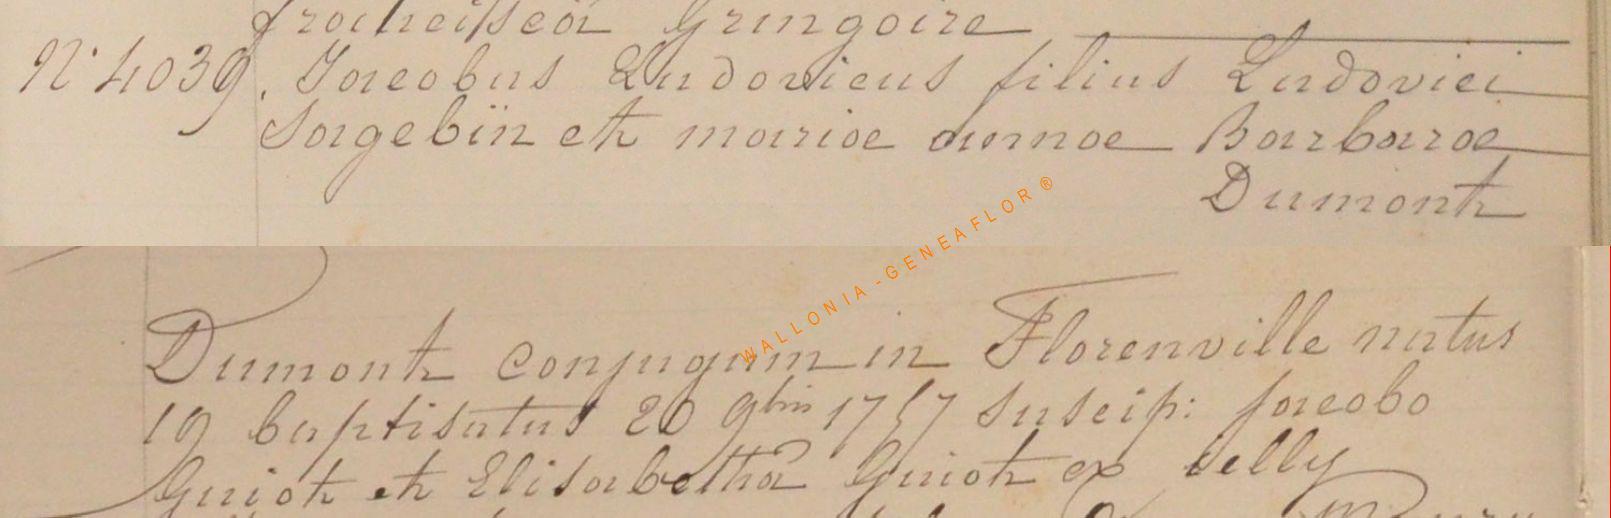 Gringoire
N° 4039. Jacobus Ludovicus filius Ludovici
Sagebïn et mariae annae Barbarae
Dumont
WALLONIA - GENEAFLOR ®
Dumont conjugum in Florenville natus
19 baptisatus 20 9bris 1757 suscip: jacobo
Guiot et Elisabetha Guiot ex